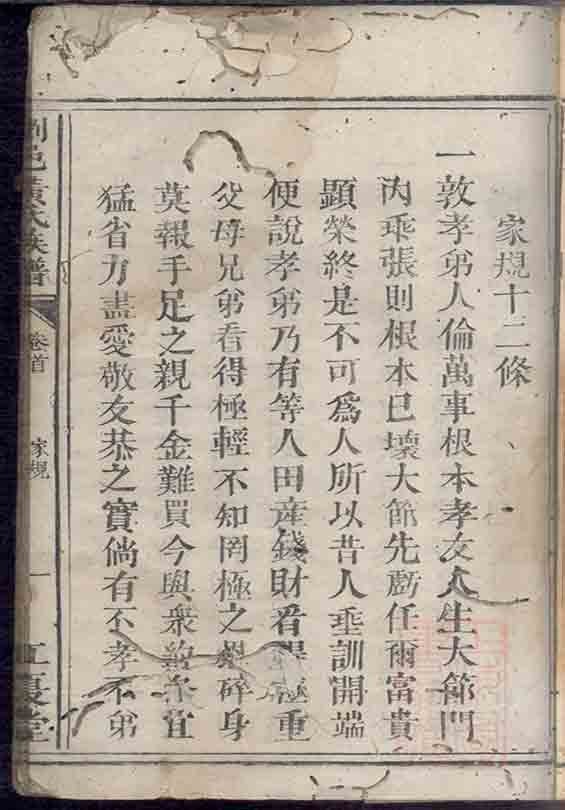 家規十二條
一敦孝弟人倫萬事根本孝友人生大節門
內乖張則根本已壞大節先虧任爾富貴
顯榮終是不可為人所以昔人垂訓開端
便說孝弟乃有等人田產錢財看得極重
父母兄弟看得極輕不知罔極之恩碎身
莫報手足之親千金難買今與衆約各宜
猛省力盡愛敬友恭之實倘有不孝不弟
瀏邑黃氏族譜
卷首
家規
一
江夏堂